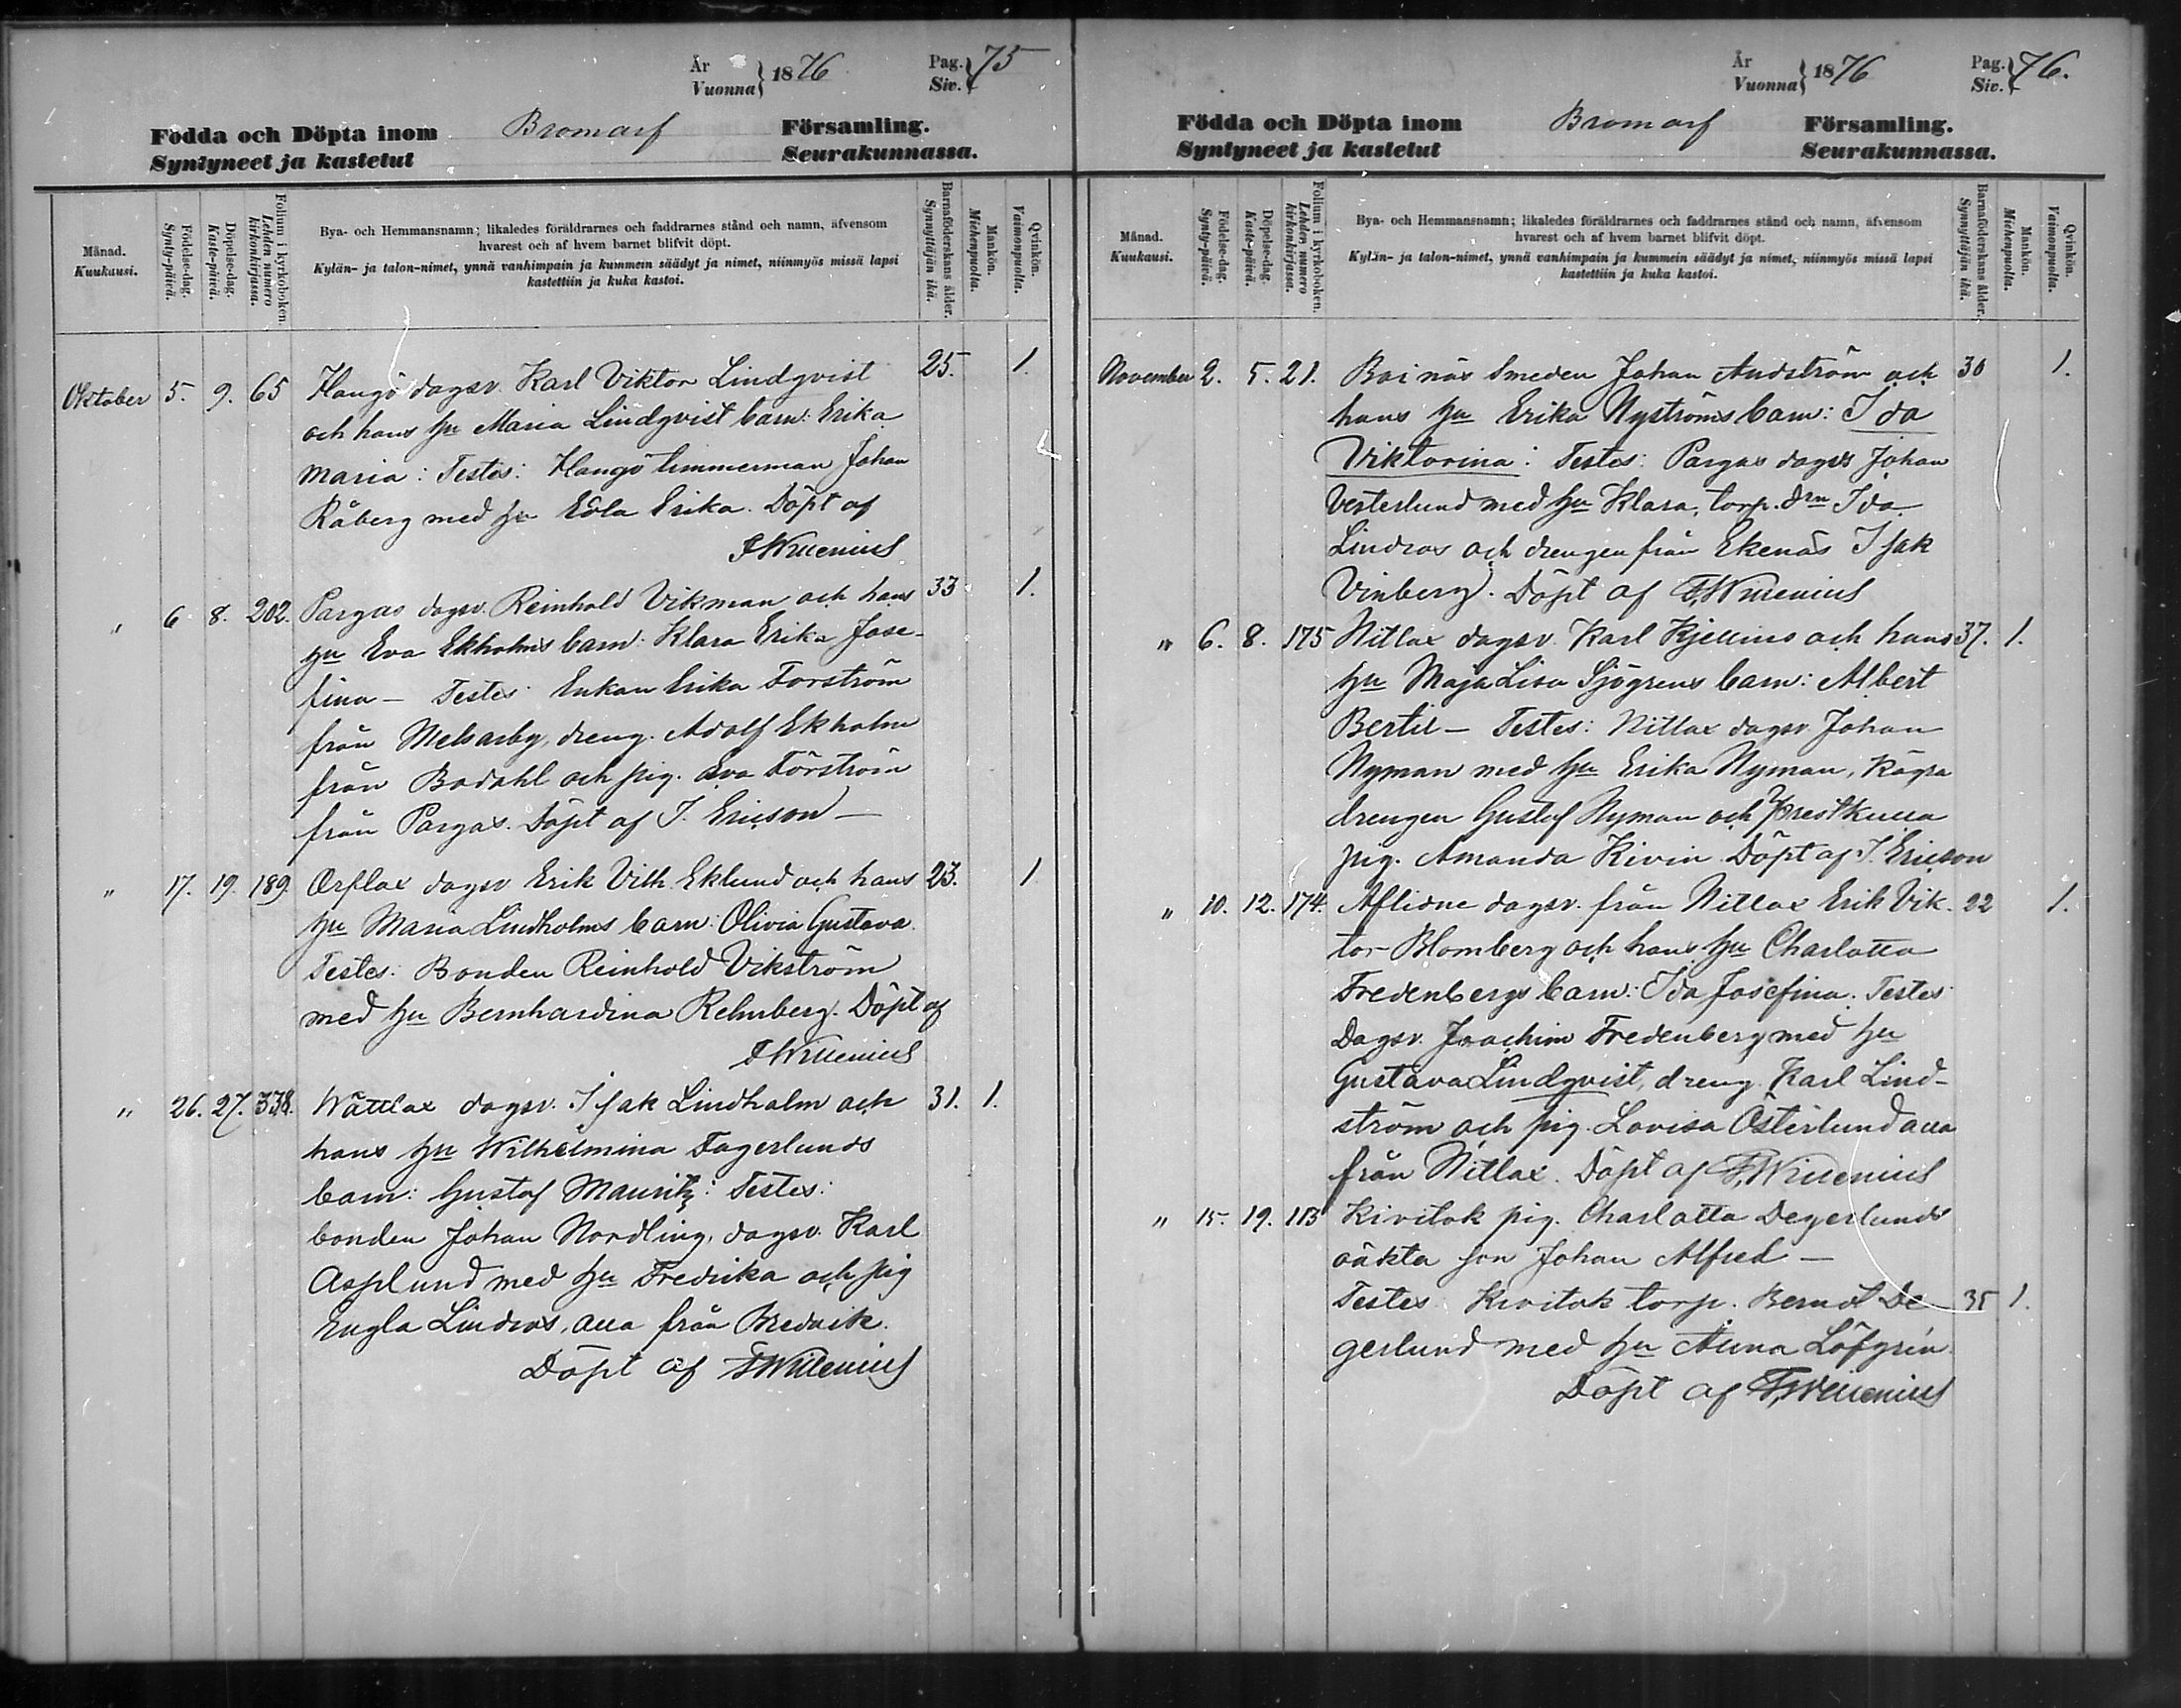 År
Vuonna } 1876
Pag.
Siv. } 75
Födda och Döpta inom Bromarf Församling.
Syntyneet ja kastetut Seurakunnassa.
Månad.
Kuukausi.
Födelse-dag.
Synty-päivä.
Döpelse-dag.
Kaste-päivä.
Folium i kyrkoboken.
Lehden numero kirkonkirjassa.
Bya- och Hemmansnamn; likaledes föräldrarnes och faddrarnes stånd och namn, äfvensom
hvarest och af hvem barnet blifvit döpt.
Kylän- ja talon-nimet, ynnä vanhimpain ja kummein säädyt ja nimet, niinmyös missä lapsi
kastettiin ja kuka kastoi.
Barnaföderskans ålder.
Synnyttäjän ikä.
Mankön.
Miehenpuolta.
Qvinkön.
Vaimonpuolta.
Oktober 5. 9. 65 Hangö dagsv. Karl Viktor Lindqvist 25. 1.
och hans hu Maria Lindqvist barn: Erika
Maria: Testes: Hangö timmerman Johan
Råberg med hu Edla Erika. Döpt af
F Willenius
" 6 8. 202. Pargas dagsv. Reinhold Vikman och hans 33 1.
hu Eva Ekholms barn: Klara Erika Jose-
fina — Testes: Enkan Erika Forström
från Melsarby, dreng. Adolf Ekholm
från Bodahl och pig. Eva Förström
från Pargas. Döpt af J. Ericson —
" 17. 19. 189. Orflax dagsv Erik Vilh. Eklund och hans 23. 1
hu Maria Lindholms barn: Olivia Gustava.
Testes: Bonden Reinhold Vikström
med hu Bernhardina Rehnberg. Döpt af
F Willenius
" 26. 27. 338. Wättlax dagsv. Isak Lindholm och 31. 1.
hans hu Wilhelmina Fagerlunds
barn: Gustaf Mauritz: Testes:
bonden Johan Nordling, dagsv. Karl
Asplund med hu Fredrika och pig
Engla Lindros, alla från Bredvik.
Döpt af F Willenius
År
Vuonna } 1876
Pag.
Siv. } 76.
Födda och Döpta inom Bromarf Församling.
Syntyneet ja kastetut Seurakunnassa.
Månad.
Kuukausi.
Födelse-dag.
Synty-päivä.
Döpelse-dag.
Kaste-päivä.
Folium i kyrkoboken.
Lehden numero kirkonkirjassa.
Bya- och Hemmansnamn; likaledes föräldrarnes och faddrarnes stånd och namn, äfvensom
hvarest och af hvem barnet blifvit döpt.
Kylän- ja talon-nimet, ynnä vanhimpain ja kummein säädyt ja nimet, niinmyös missä lapsi
kastettiin ja kuka kastoi.
Barnaföderskans ålder.
Synnyttäjän ikä.
Mankön.
Miehenpuolta.
Qvinkön.
Vaimonpuolta.
November 2. 5. 21. Boinäs Smeden Johan Andström och 30 1.
hans hu Erika Nyströms barn: Ida
Viktorina: Testes: Pargas dagsv Johan
Vesterlund med hu Klara, torp. drn Ida
Lindros och drengen från Ekenäs Isak
Vinberg. Döpt af F, Willenius
" 6. 8. 175 Nitlax dagsv. Karl Kjellins och hans 37. 1.
hu Maja Lisa Sjögrens barn: Albert
Bertil — Testes: Nitlax dagsv. Johan
Nyman med hu Erika Nyman, Kågra
drengen Gustaf Nyman och Prestkulla
pig. Amanda Kivin. Döpt af J. Ericson
" 10. 12. 174. Aflidne dagsv. från Nitlax Erik Vik- 22 1.
tor Blomberg och hans hu Charlotta
Fredenbergs barn: Ida Josefina. Testes:
Dagsv. Joachim Fredenberg med hu
Gustava Lindqvist, dreng. Karl Lind-
ström och pig. Lovisa Österlund alla
från Nitlax. Döpt af F, Willenius
" 15. 19. 113 Kivitok pig. Charlotta Degerlunds
oäkta son Johan Alfred —
Testes: Kivitok torp. Berndt De- 35 1.
gerlund med hu Anna Löfgrén.
Döpt af F, Willenius